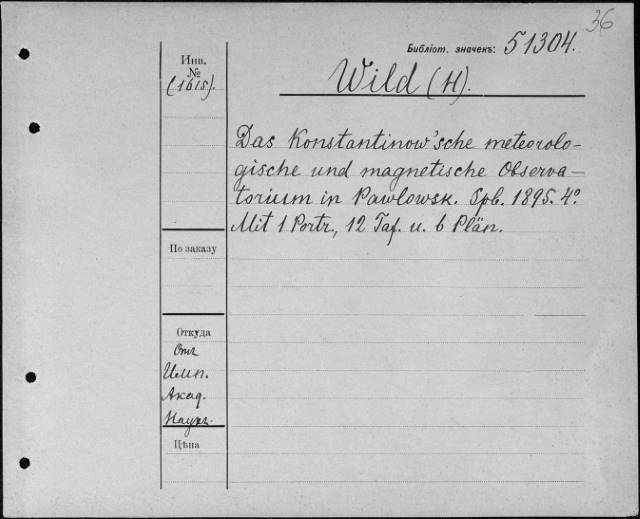 36
Библіот. значекъ: 51304.
Инв.
№
(1615).
Wild (H).
Das Konstantinow'sche meteorolo-
gische und magnetische Observa-
torium in Pawlowsk. Spb. 1895. 4º.
Mit 1 Portr., 12 Taf. u. 6 Plän.
По заказу
Откуда
Отъ
Имп.
Акад.
Наукъ.
Цѣна